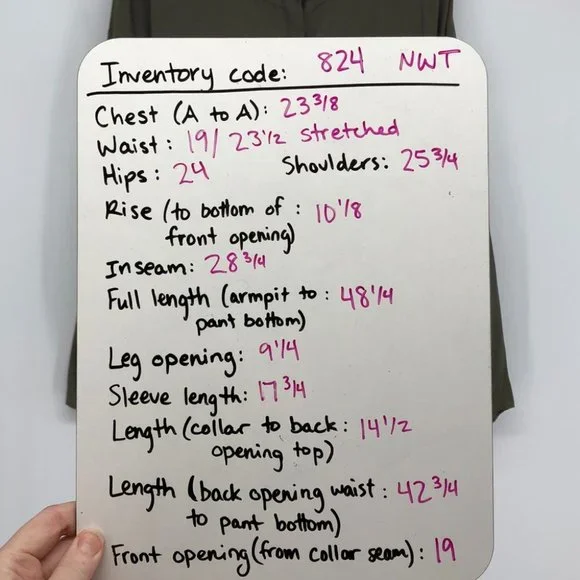 Inventory code: 824 NWT
Chest (A to A): 23 3/8
Waist: 19/ 23 1/2 stretched
Hips: 24 Shoulders: 25 3/4
Rise (to bottom of : 10 1/8
front opening)
Inseam: 28 3/4
Full length (armpit to : 48 1/4
pant bottom)
Leg opening: 9 1/4
Sleeve length: 17 3/4
Length (collar to back : 14 1/2
opening top)
Length (back opening waist : 42 3/4
to pant bottom)
Front opening (from collar seam): 19